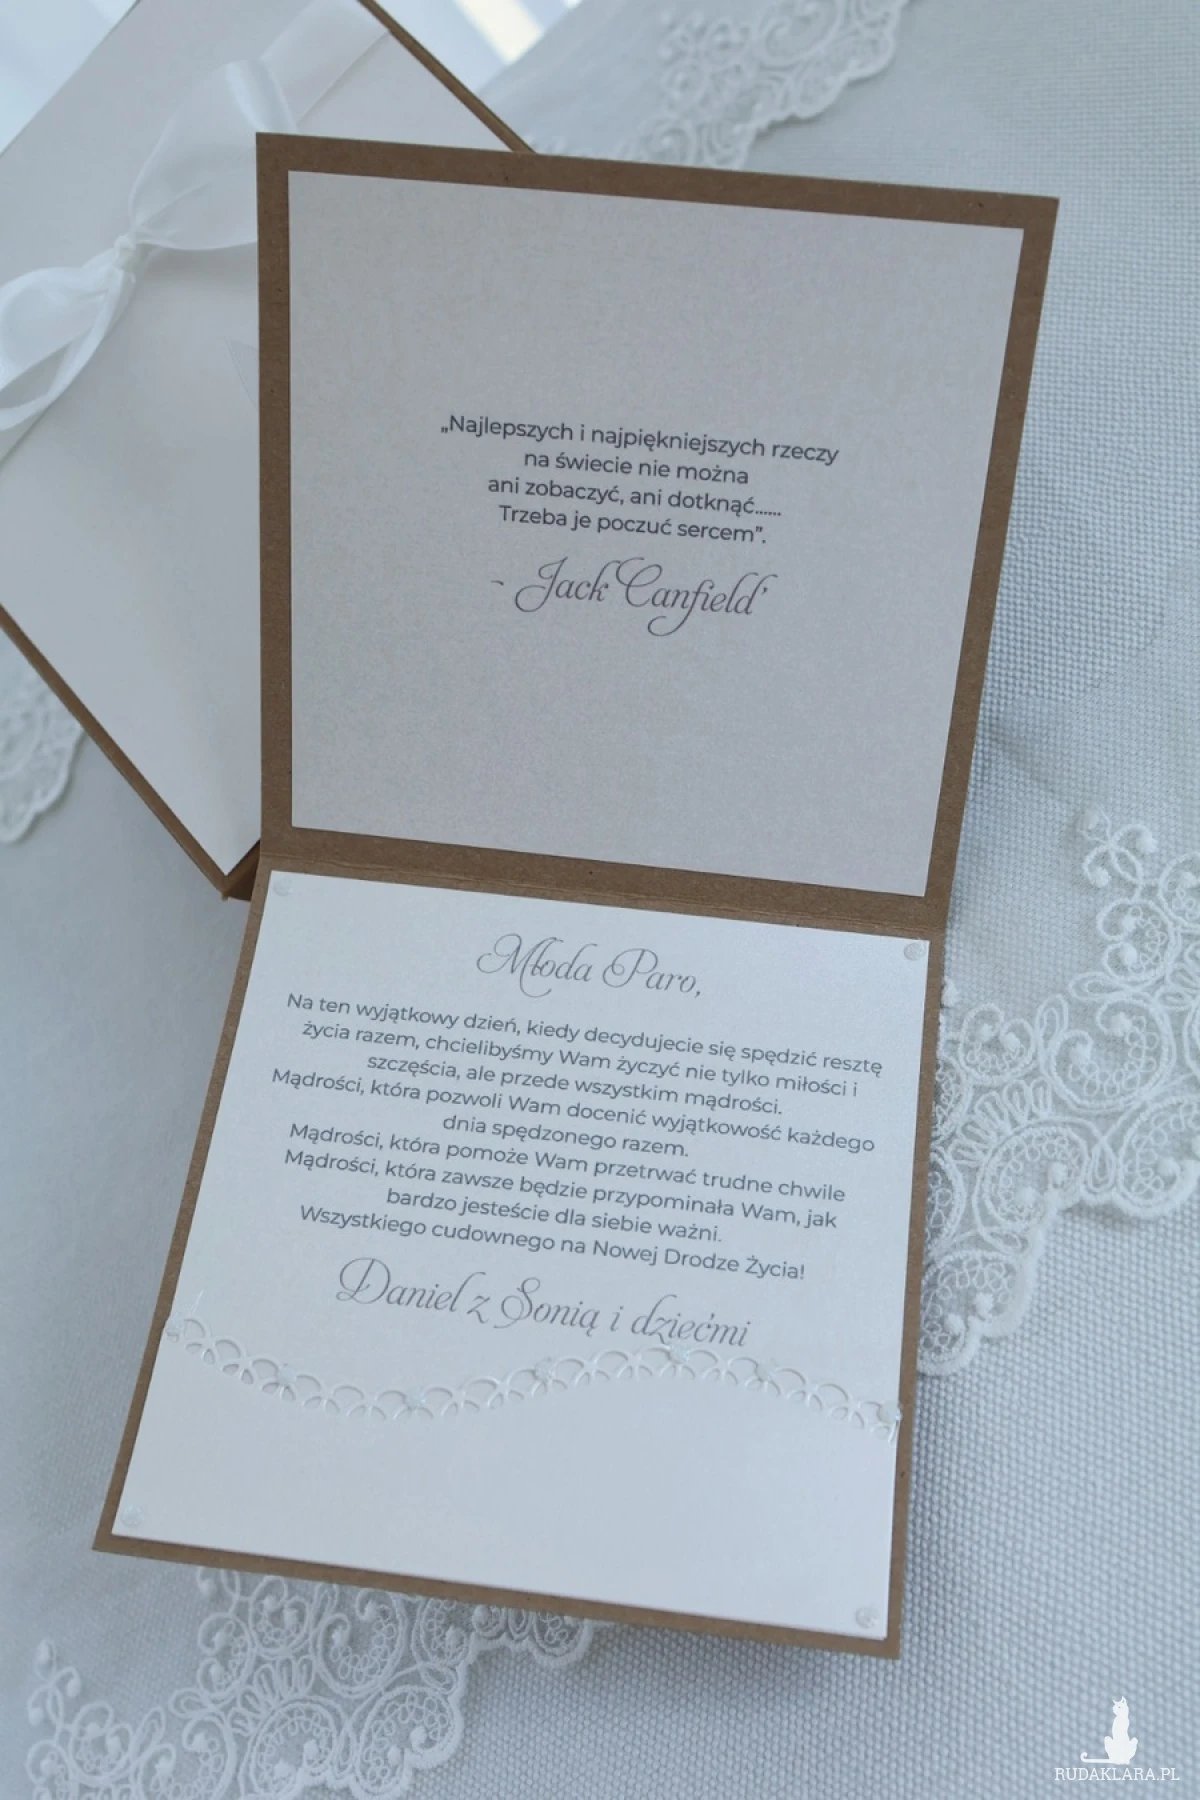 „Najlepszych i najpiękniejszych rzeczy
na świecie nie można
ani zobaczyć, ani dotknąć......
Trzeba je poczuć sercem”.
- Jack Canfield’
Młoda Paro,
Na ten wyjątkowy dzień, kiedy decydujecie się spędzić resztę
życia razem, chcielibyśmy Wam życzyć nie tylko miłości i
szczęścia, ale przede wszystkim mądrości.
Mądrości, która pozwoli Wam docenić wyjątkowość każdego
dnia spędzonego razem.
Mądrości, która pomoże Wam przetrwać trudne chwile
Mądrości, która zawsze będzie przypominała Wam, jak
bardzo jesteście dla siebie ważni.
Wszystkiego cudownego na Nowej Drodze Życia!
Daniel z Sonią i dziećmi
RUDAKLARA.PL